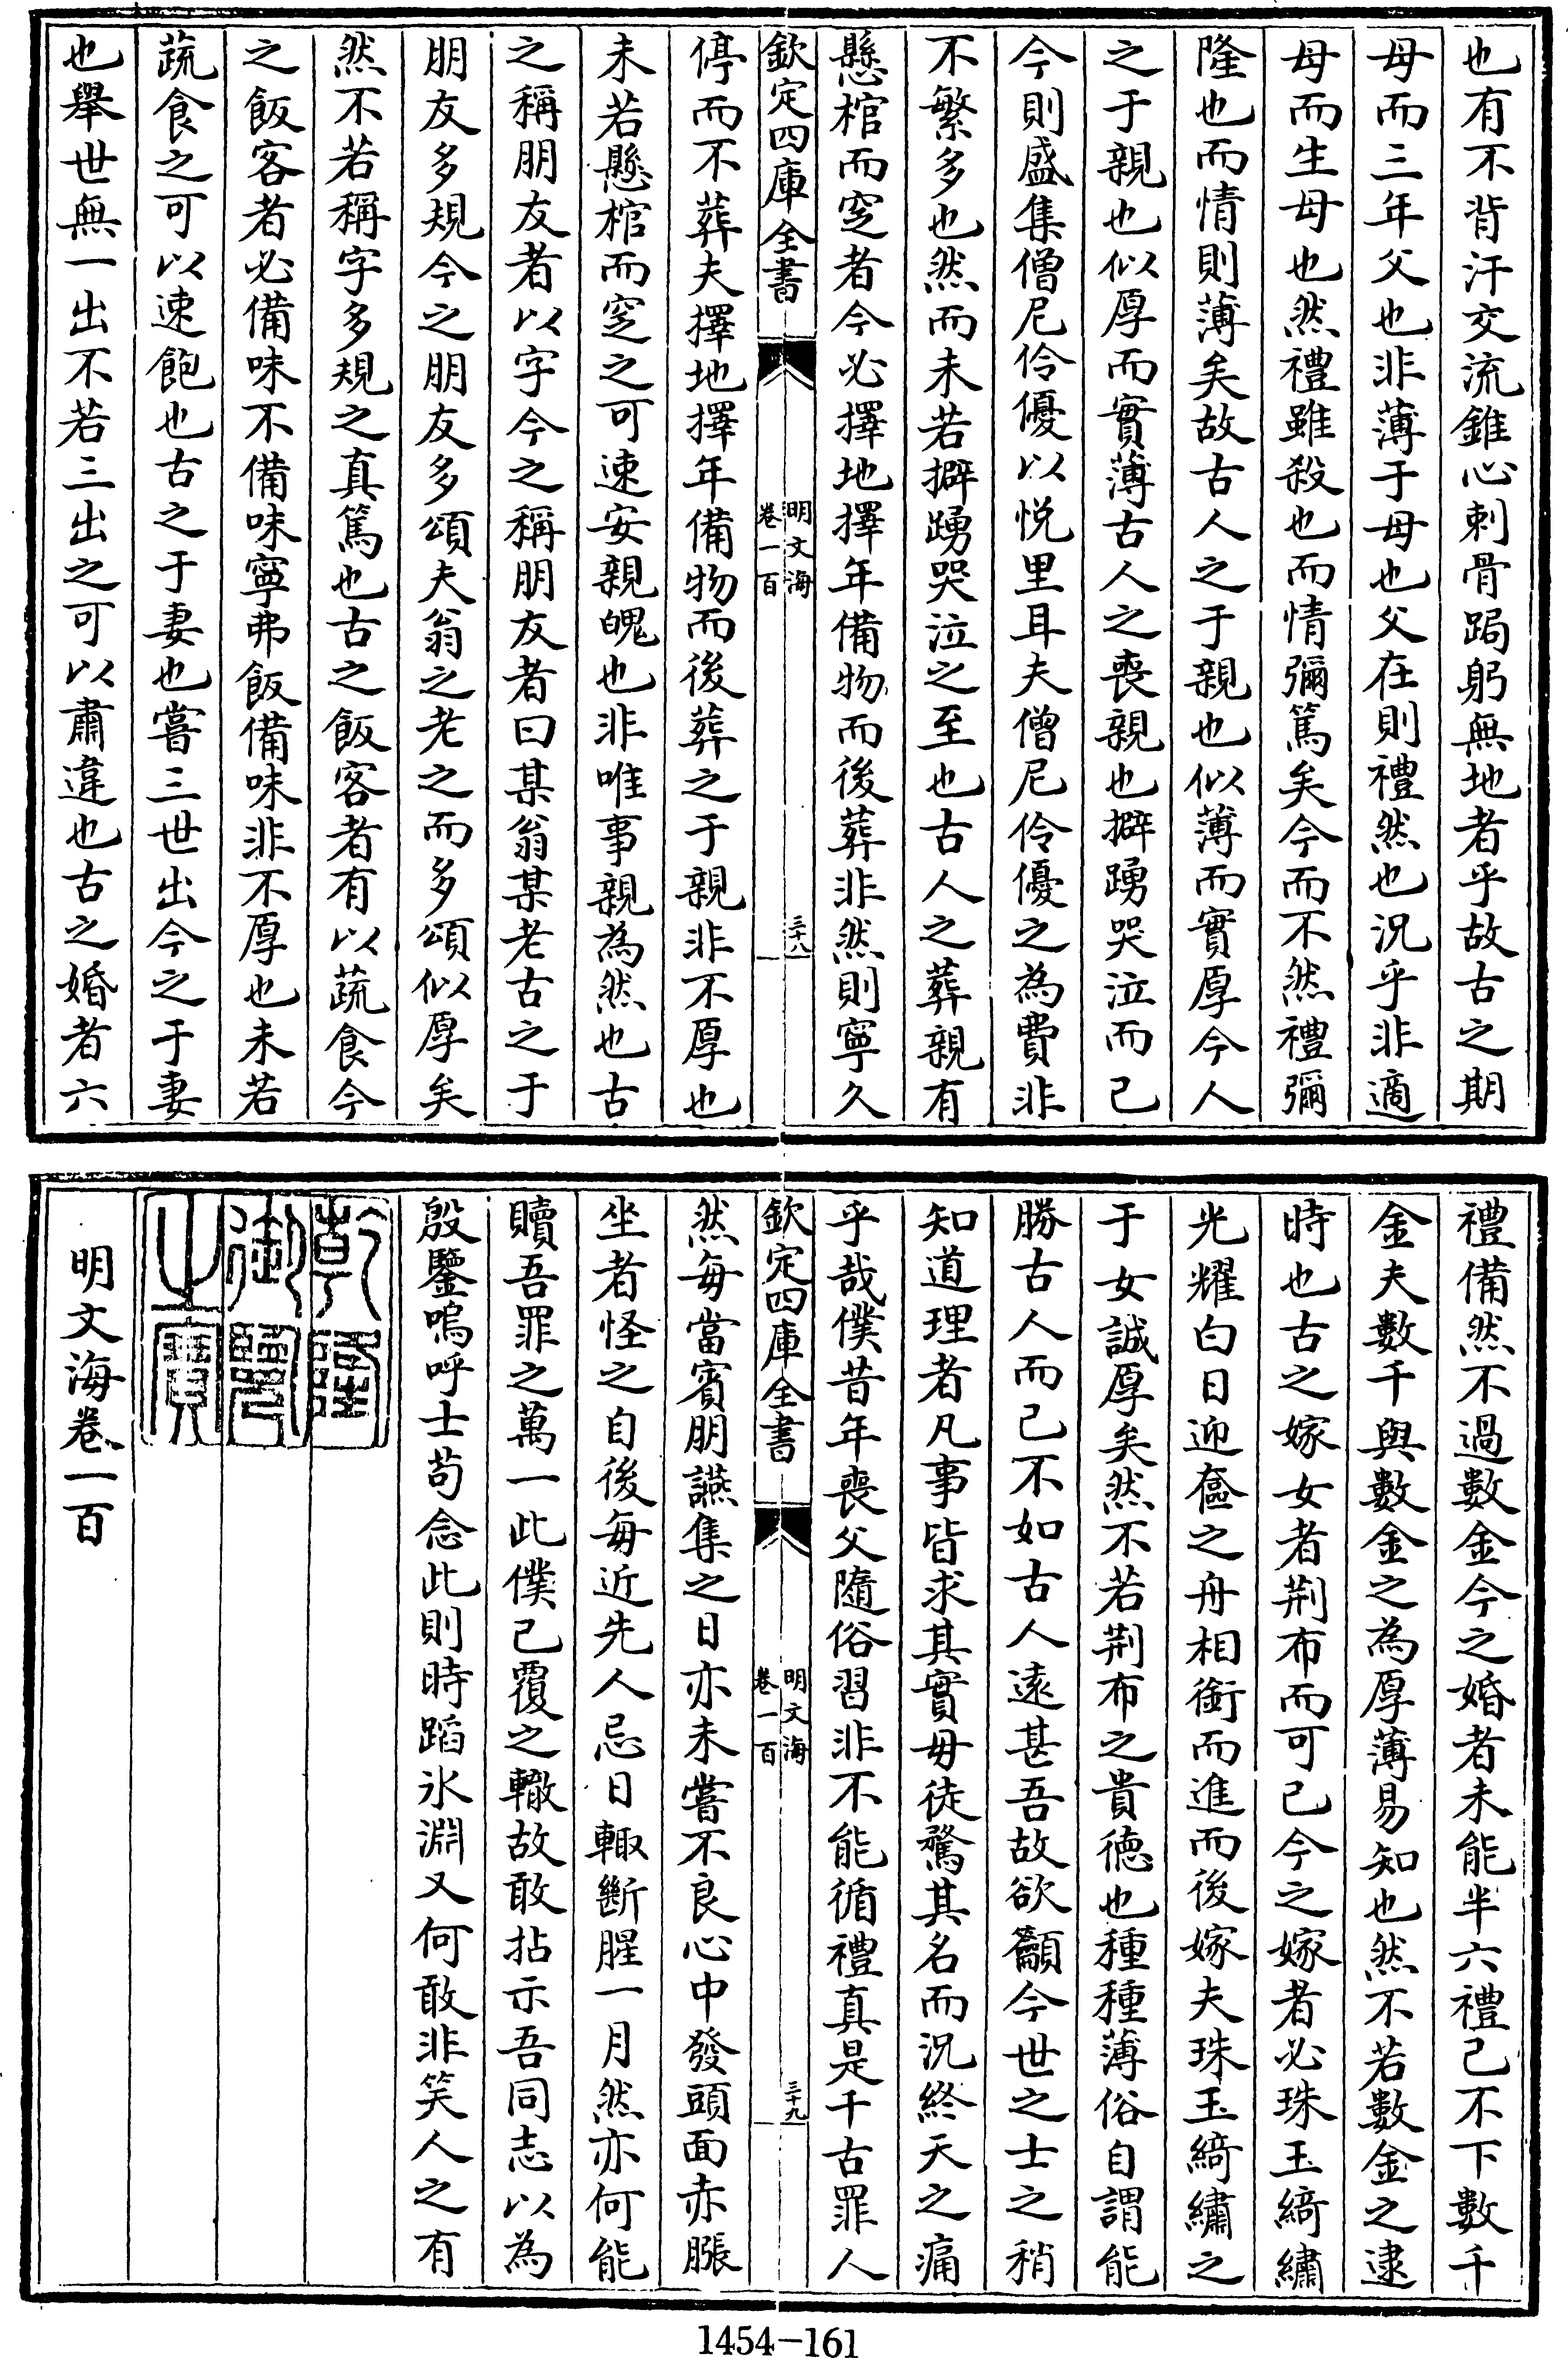 也有不背汗交流錐心刺骨跼躬無地者乎故古之期
母而三年父也非薄于母也父在則禮然也況乎非適
母而生母也然禮雖殺也而情彌篤矣今而不然禮彌
隆也而情則薄矣故古人之于親也似薄而實厚今人
之于親也似厚而實薄古人之喪親也擗踴哭泣而已
今則盛集僧尼伶優以悅里耳夫僧尼伶優之為費非
不繁多也然而未若擗踴哭泣之至也古人之葬親有
懸棺而窆者今必擇地擇年備物而後葬非然則寧久
欽定四庫全書
明文海
卷一百
三十八
停而不葬夫擇地擇年備物而後葬之于親非不厚也
未若懸棺而窆之可速安親魄也非唯事親為然也古
之稱朋友者以字今之稱朋友者曰某翁某老古之于
朋友多規今之朋友多頌夫翁之老之而多頌似厚矣
然不若稱字多規之真篤也古之飯客者有以蔬食今
之飯客者必備味不備味寧弗飯備味非不厚也未若
蔬食之可以速飽也古之于妻也嘗三世出今之于妻
也舉世無一出不若三出之可以肅違也古之婚者六
禮備然不過數金今之婚者未能半六禮已不下數千
金夫數千與數金之為厚薄易知也然不若數金之逮
時也古之嫁女者荆布而可已今之嫁者必珠玉綺繡
光耀白日迎奩之舟相銜而進而後嫁夫珠玉綺繡之
于女誠厚矣然不若荆布之貴德也種種薄俗自謂能
勝古人而已不如古人遠甚吾故欲籲今世之士之稍
知道理者凡事皆求其實毋徒騖其名而況終天之痛
乎哉僕昔年喪父隨俗習非不能循禮真是千古罪人
欽定四庫全書
明文海
卷一百
三十九
然每當賓朋讌集之日亦未嘗不良心中發頭面赤脹
坐者怪之自後每近先人忌日輙斷腥一月然亦何能
贖吾罪之萬一此僕已覆之轍故敢拈示吾同志以為
殷鑒嗚呼士苟念此則時蹈氷淵又何敢非笑人之有
乾隆
御覽
之寶
明文海卷一百
1454-161